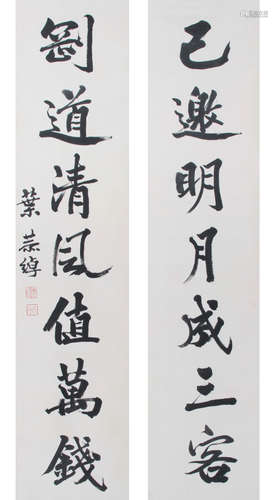 已邀明月成三客
剛道清風值萬錢
葉恭綽